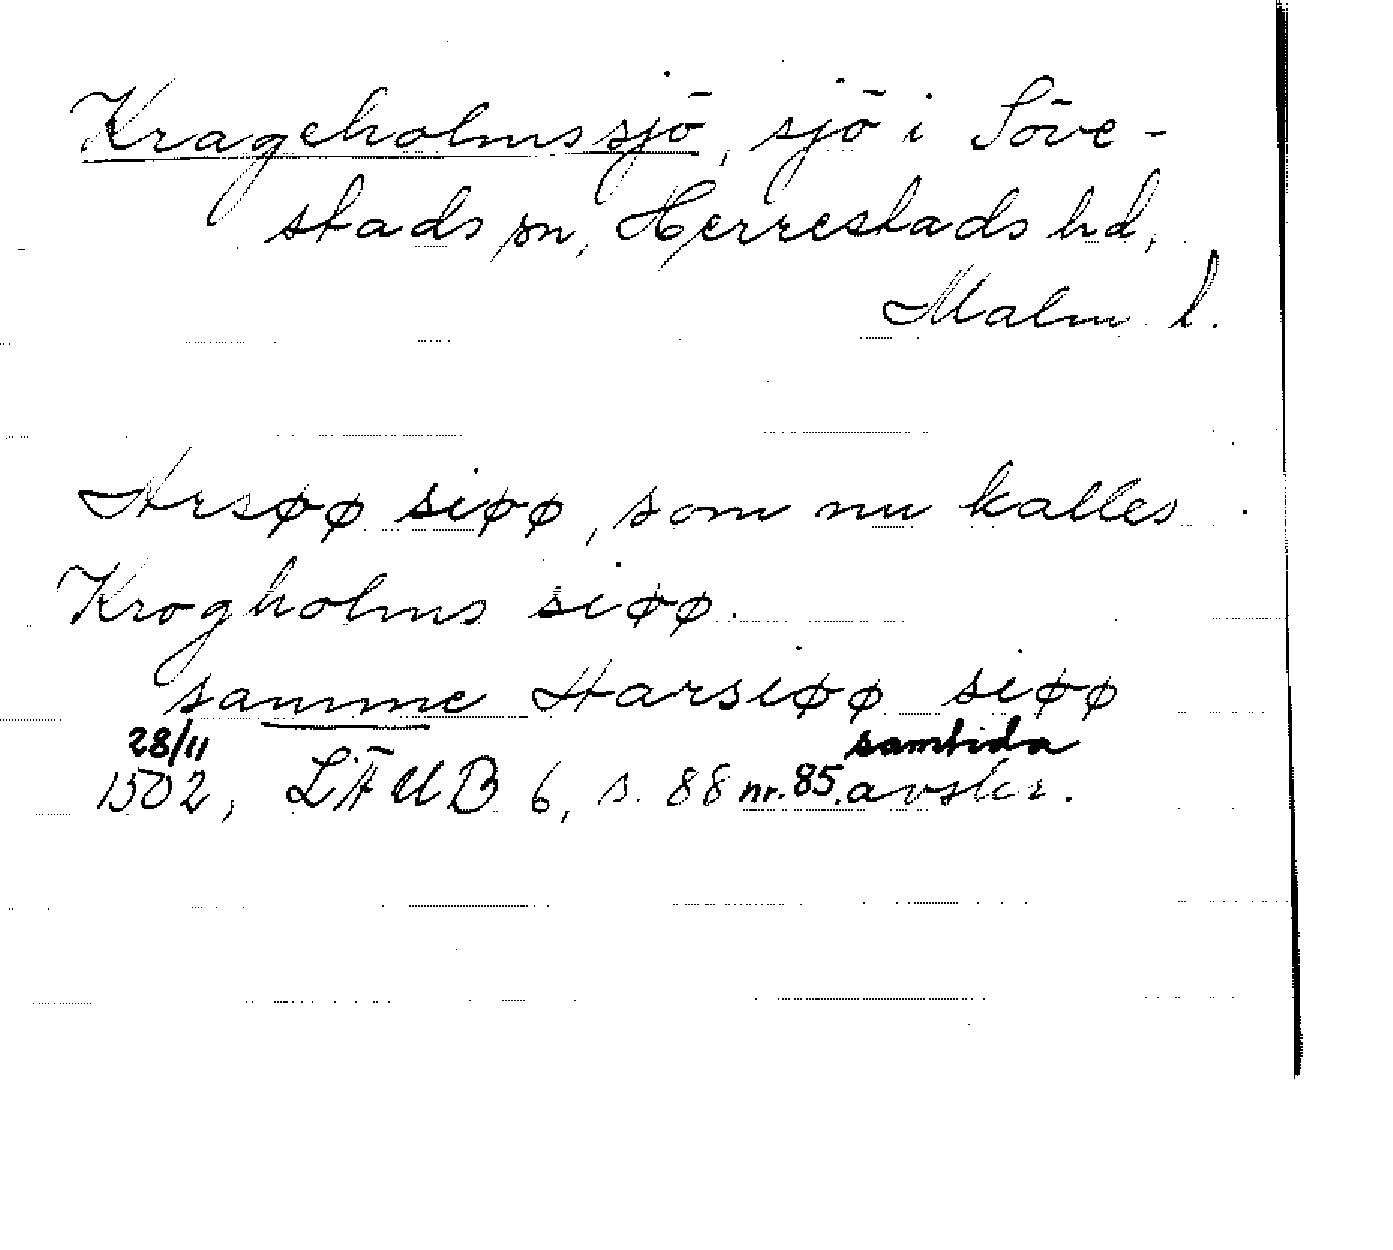 Krageholmssjö, sjö i Söve-
stads sn, Herrestads hd,
Malm. l.
Arsøø siøø, som nu kalles
Krogholms siøø.
samme Harsiøø siøø
28/11 samtida
1502, LÄUB 6, s. 88 nr. 85. avskr.